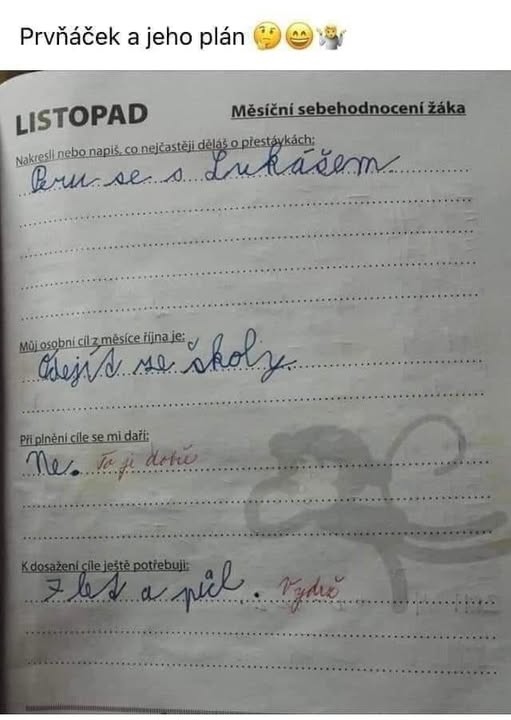 Prvňáček a jeho plán 🤔😄🤷
LISTOPAD
Měsíční sebehodnocení žáka
Nakresli nebo napiš, co nejčastěji děláš o přestávkách:
Peru se s Lukášem
Můj osobní cíl z měsíce října je:
Odejít ze školy.
Při plnění cíle se mi daří:
Ne. To je dobře
K dosažení cíle ještě potřebuji:
7 let a půl. Vydrž